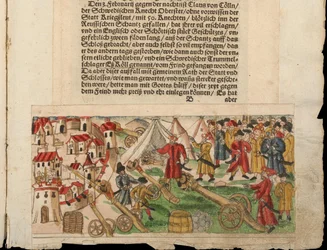 Den 7. Februarij gegen der nachtist Claus von Cölln/
der Schwedischen Knecht Obrister/ohne vorwissen der
Statt Kriegsleut/ mit 60. Knechten/ in der
Reussischen Schantz gefallen/ hat ihrer 40. erschlagen/
und ein Englisch oder Schottisch stück Geschützes/
gefehrlich zween läng/ auß der Schantz auff das
Schloß gebracht/ aber auch selbst so viel empfangen/ das
er des andern tags gestorben/ wie dann auch sonst der
ein Schwedischer Trummel-
schlager vom Feind gefangen worden.
Da aber diser außfall mit gemeinem Rath der Statt und
Schlosses/
ben were/ hette man mit Gottes hülff/ diser zeyt gegen
dem Feind mehr preiß und ehr einlegen können/ Es hat
B aber